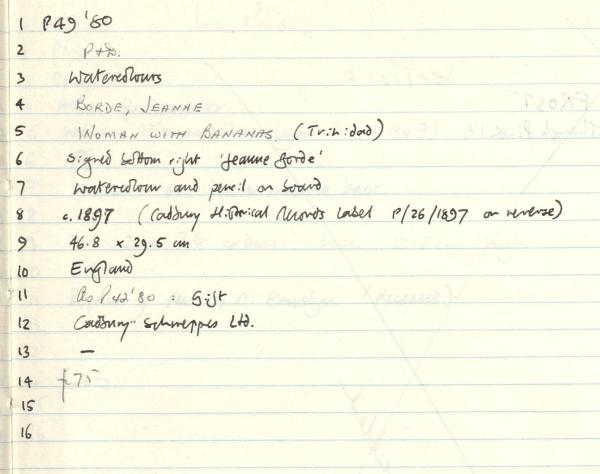 1 P49 '80
2 P+D.
3 Watercolours
4 BORDE, JEANNE
5 WOMAN WITH BANANAS (Trinidad)
6 Signed bottom right 'Jeanne Borde'
7 Watercolour and pencil on board
8 c.1897 (Cadbury Historical Records Label P/26/1897 on reverse)
9 46.8 x 29.5 cm
10 England
11 As P42 '80 : Gift
12 Cadbury-Schweppes Ltd.
13 —
14 £75
15
16
FROST